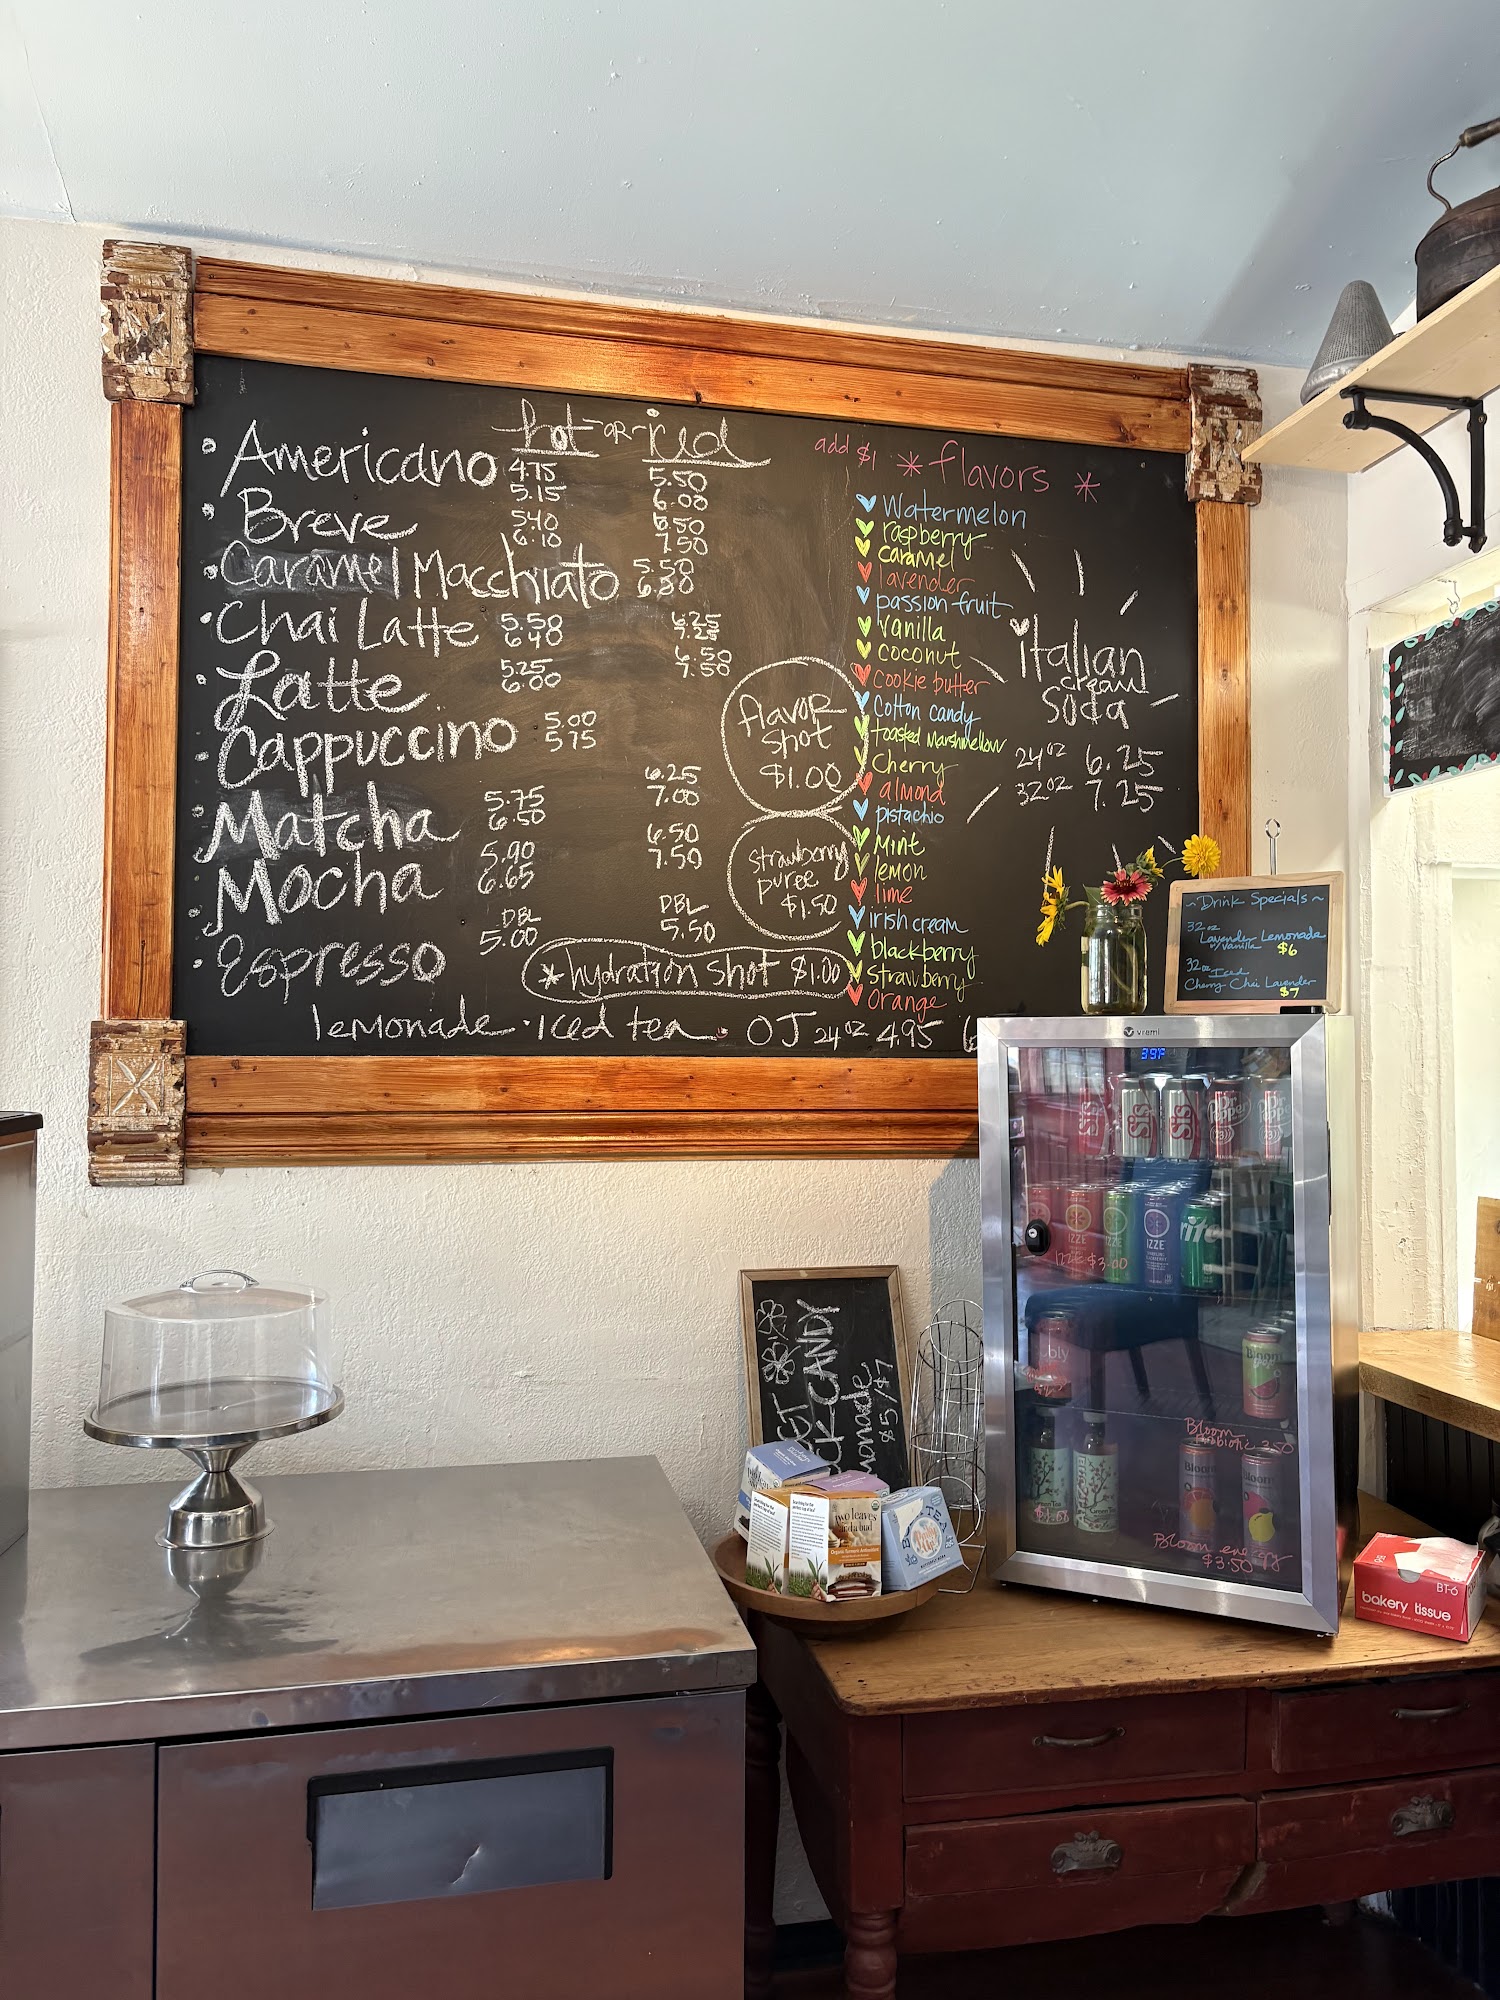 hot -OR- iced
Americano 4.75 5.50
5.15 6.00
Breve 5.40 6.50
6.10 7.50
Caramel Macchiato 5.50
Chai Latte 5.50 6.25
7.25
Latte 5.25 6.50
6.00 7.50
Cappuccino 5.00
5.75
Matcha 5.75 6.25
6.50 7.00
Mocha 5.90 6.50
6.65 7.50
Espresso DBL DBL
5.00 5.50
flavor
shot
$1.00
strawberry
puree
$1.50
*hydration shot $1.00
lemonade · iced tea · OJ 24oz 4.95
add $1 * flavors *
Watermelon
raspberry
caramel
lavender
passion fruit
vanilla
coconut
cookie butter
Cotton candy
toasted Marshmellow
Cherry
almond
pistachio
Mint
lemon
lime
irish cream
blackberry
strawberry
Orange
Italian
cream
soda
24oz 6.25
32oz 7.25
~Drink Specials~
32oz
Lavender Lemonade
w/vanilla $6
32oz Iced
Cherry Chai Lavender
$7
vremi
39°F
Dr Pepper
IZZE
IZZE
IZZE $3.00
rite
bly
Bloom
Bloom
Probiotic 3.50
Bloom
Bloom
Green Tea
Bloom energy
$3.50
CANDY
monade
$5/$7
two leaves
and a bud
Organic Turmeric Antioxidant
TEA
BT-6
bakery tissue